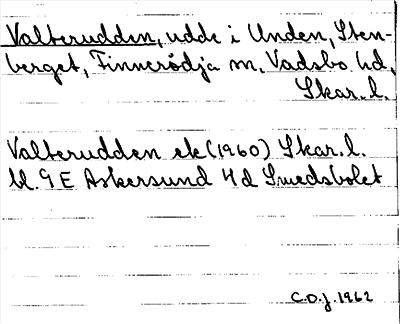 Valterudden, udde i Unden, Sten-
berget, Finnerödja sn. Vadsbo hd,
Skar. l.
Valterudden ek (1960) Skar. l.
bl. 9 E Askersund 4 d Svedsbolet
C.O.J. 1962